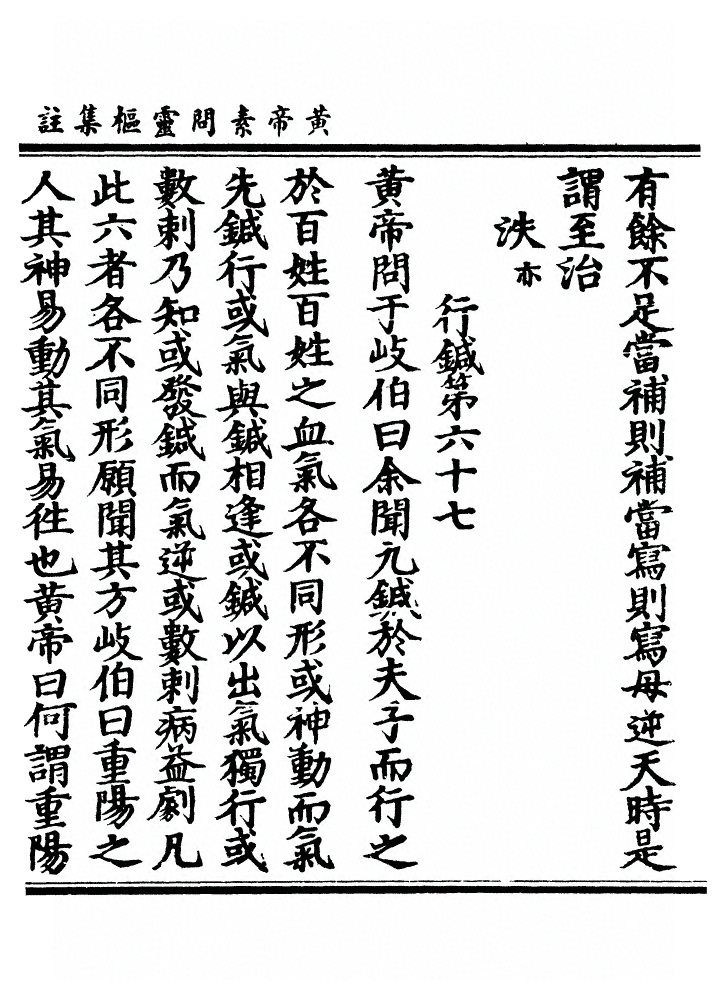 黃帝素問靈樞集註
有餘不足當補則補當寫則寫毋逆天時是
謂至治
泆亦
行鍼第六十七
黃帝問于歧伯曰余聞九鍼於夫子而行之
於百姓百姓之血氣各不同形或神動而氣
先鍼行或氣與鍼相逢或鍼以出氣獨行或
數刺乃知或發鍼而氣逆或數刺病益劇凡
此六者各不同形願聞其方歧伯曰重陽之
人其神易動其氣易往也黃帝曰何謂重陽